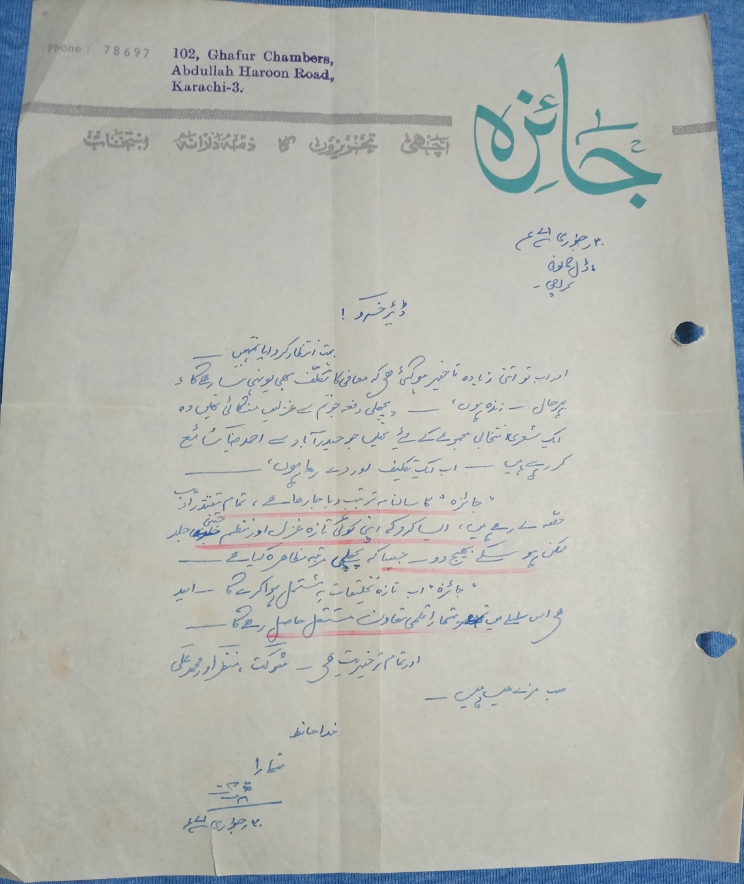 Phone: 78697
102, Ghafur Chambers,
Abdullah Haroon Road,
Karachi-3.
جائزہ
اچھی تحریروں کا ذمہ دارانہ انتخاب
۳۰ جنوری
ماڈل کالونی
کراچی۔
ڈیئر خسرو!
بہت انتظار کروایا تمہیں —
اور اب تو اتنی زیادہ تاخیر ہو گئی ہے کہ معافی کا تکلّف بھی یونہی سا رہے گا،
بہرحال — زندہ ہوں، — پچھلی دفعہ جو تم سے غزلیں منگائی تھیں وہ
ایک شعری انتخابی مجموعے کے لیے تھیں جو حیدرآباد سے احمد ضیا شائع
کر رہے ہیں — اب ایک تکلیف اور دے رہا ہوں، —
"جائزہ" کا سالنامہ ترتیب دیا جا رہا ہے، تمام مقتدر ادیب
حصّہ لے رہے ہیں، ایسا کرو کہ اپنی کوئی تازہ غزل اور نظم جتنی جلد
ممکن ہو سکے بھیج دو — جیسا کہ پچھلی مرتبہ مظاہرہ کیا ہے —
"جائزہ" اب تازہ تخلیقات پر مشتمل ہوا کرے گا — امید
ہے اس سلسلے میں تمہارا قلمی تعاون مستقل حاصل رہے گا —
اور تمام تر خیریت ہے — شوکت، منظر اور محمد علی
سب مزے میں ہیں —
خدا حافظ
تمہارا
۳۰ جنوری